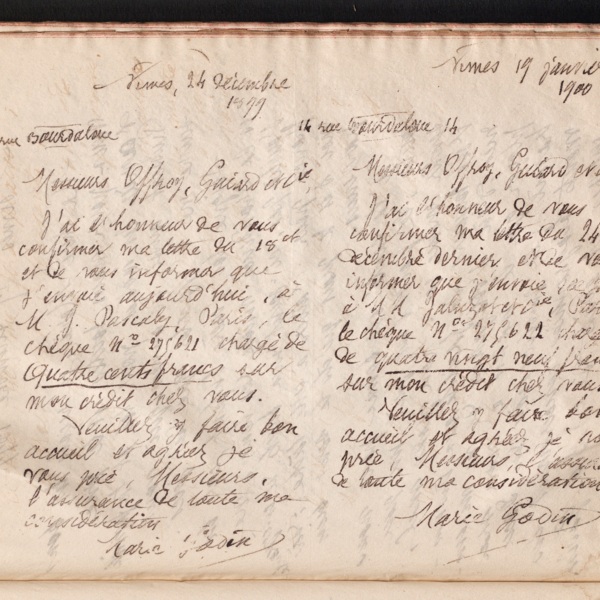 Nimes, 24 Décembre
1899
rue Bourdaloue
Messieurs Offroy, Guiard et Cie,
J'ai l'honneur de vous
confirmer ma lettre du 18 ct
et de vous informer que
j'envoie aujourd'hui, à
M. J. Pascaly, Paris, le
chèque No 275621 chargé de
Quatre cents francs sur
mon crédit chez vous.
Veuillez y faire bon
accueil et agréer je
vous prie, Messieurs,
l'assurance de toute ma
considération
Marie Godin
Nimes 19 janvier
1900
14 rue Bourdaloue 14
Messieurs Offroy, Guiard et
J'ai l'honneur de vous
confirmer ma lettre du 24
décembre dernier et de
informer que j'envoie
à
le chèque No 275622
de quatre vingt neuf
sur mon crédit chez vous
Veuillez y faire bon
accueil et agréer je
prie, Messieurs,
de toute ma considération
Marie Godin